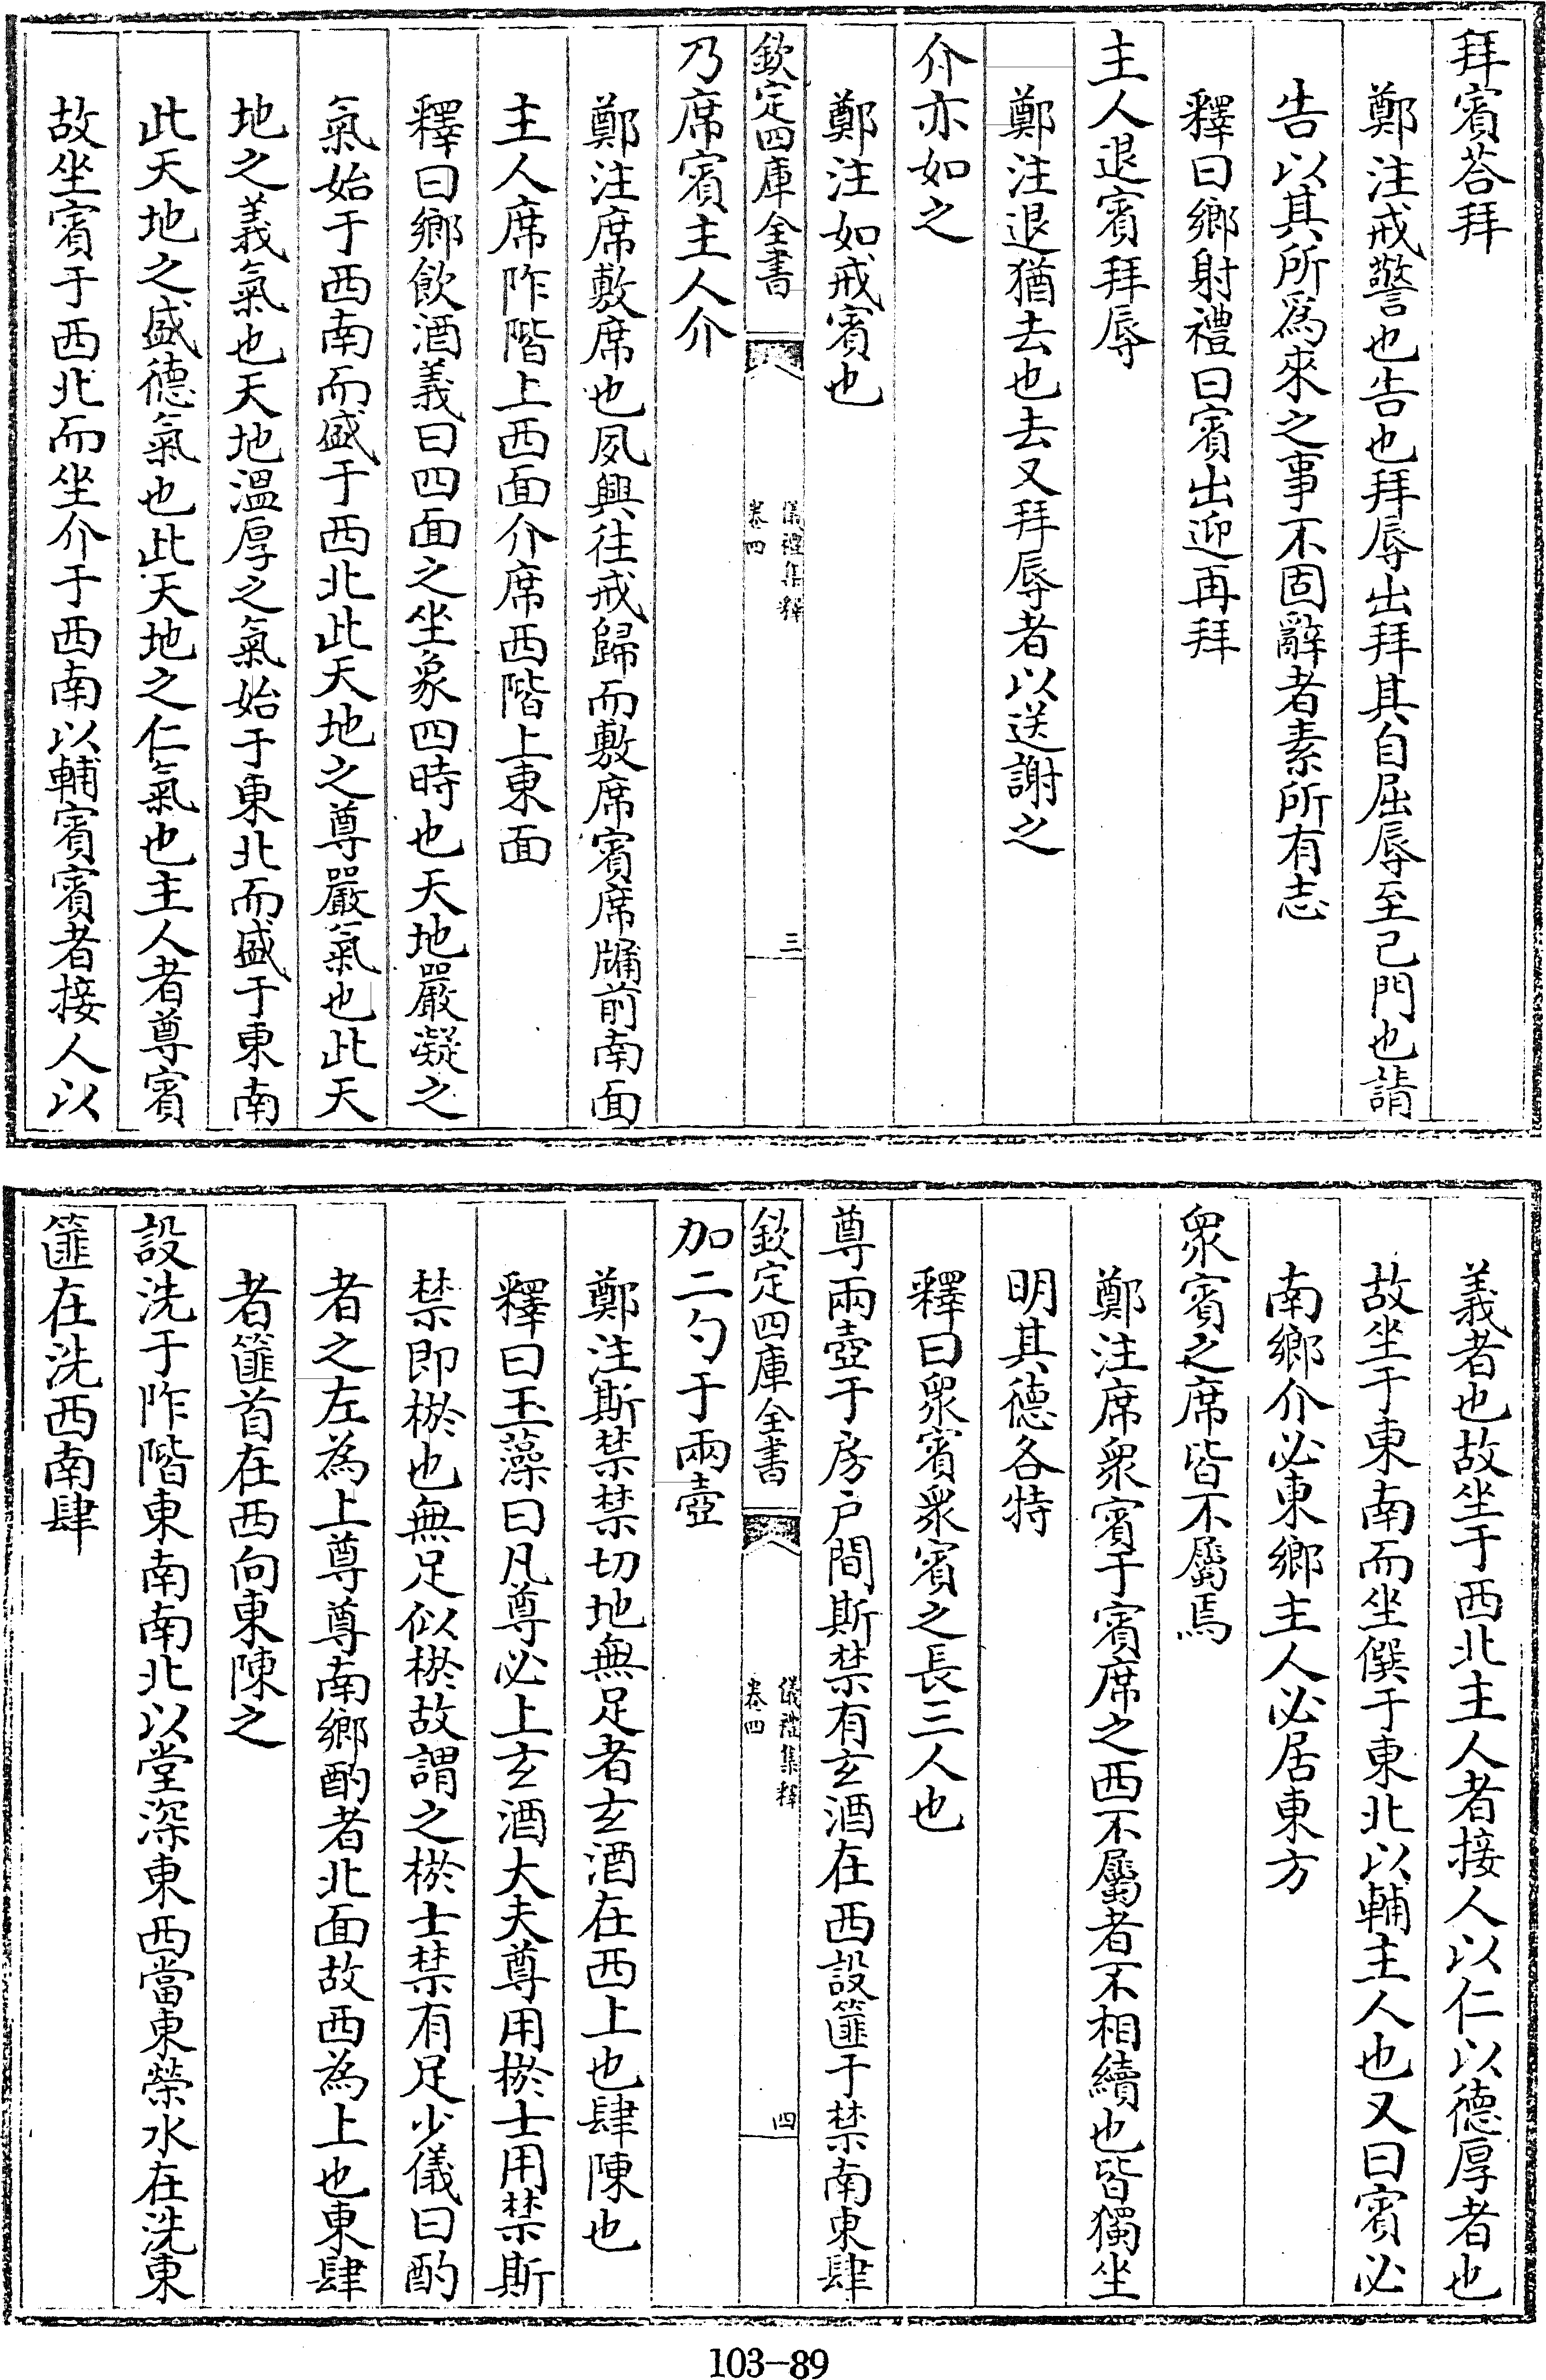 拜賓荅拜
鄭注戒警也告也拜辱出拜其自屈辱至己門也請
告以其所為來之事不固辭者素所有志
釋曰鄉射禮曰賓出迎再拜
主人退賓拜辱
鄭注退猶去也去又拜辱者以送謝之
介亦如之
鄭注如戒賓也
欽定四庫全書
儀禮集釋
卷四
三
乃席賓主人介
鄭注席敷席也夙興往戒歸而敷席賓席牖前南面
主人席阼階上西面介席西階上東面
釋曰鄉飲酒義曰四面之坐象四時也天地嚴凝之
氣始于西南而盛于西北此天地之尊嚴氣也此天
地之義氣也天地溫厚之氣始于東北而盛于東南
此天地之盛德氣也此天地之仁氣也主人者尊賓
故坐賓于西北而坐介于西南以輔賓賓者接人以
義者也故坐于西北主人者接人以仁以德厚者也
故坐于東南而坐僎于東北以輔主人也又曰賓必
南鄉介必東鄉主人必居東方
眾賓之席皆不屬焉
鄭注席眾賓于賓席之西不屬者不相續也皆獨坐
明其德各特
釋曰眾賓眾賓之長三人也
尊兩壺于房戶間斯禁有玄酒在西設篚于禁南東肆
欽定四庫全書
儀禮集釋
卷四
四
加二勺于兩壺
鄭注斯禁禁切地無足者玄酒在西上也肆陳也
釋曰玉藻曰凡尊必上玄酒大夫尊用棜士用禁斯
禁即棜也無足似棜故謂之棜士禁有足少儀曰酌
者之左為上尊尊南鄉酌者北面故西為上也東肆
者篚首在西向東陳之
設洗于阼階東南南北以堂深東西當東榮水在洗東
篚在洗西南肆
103-89